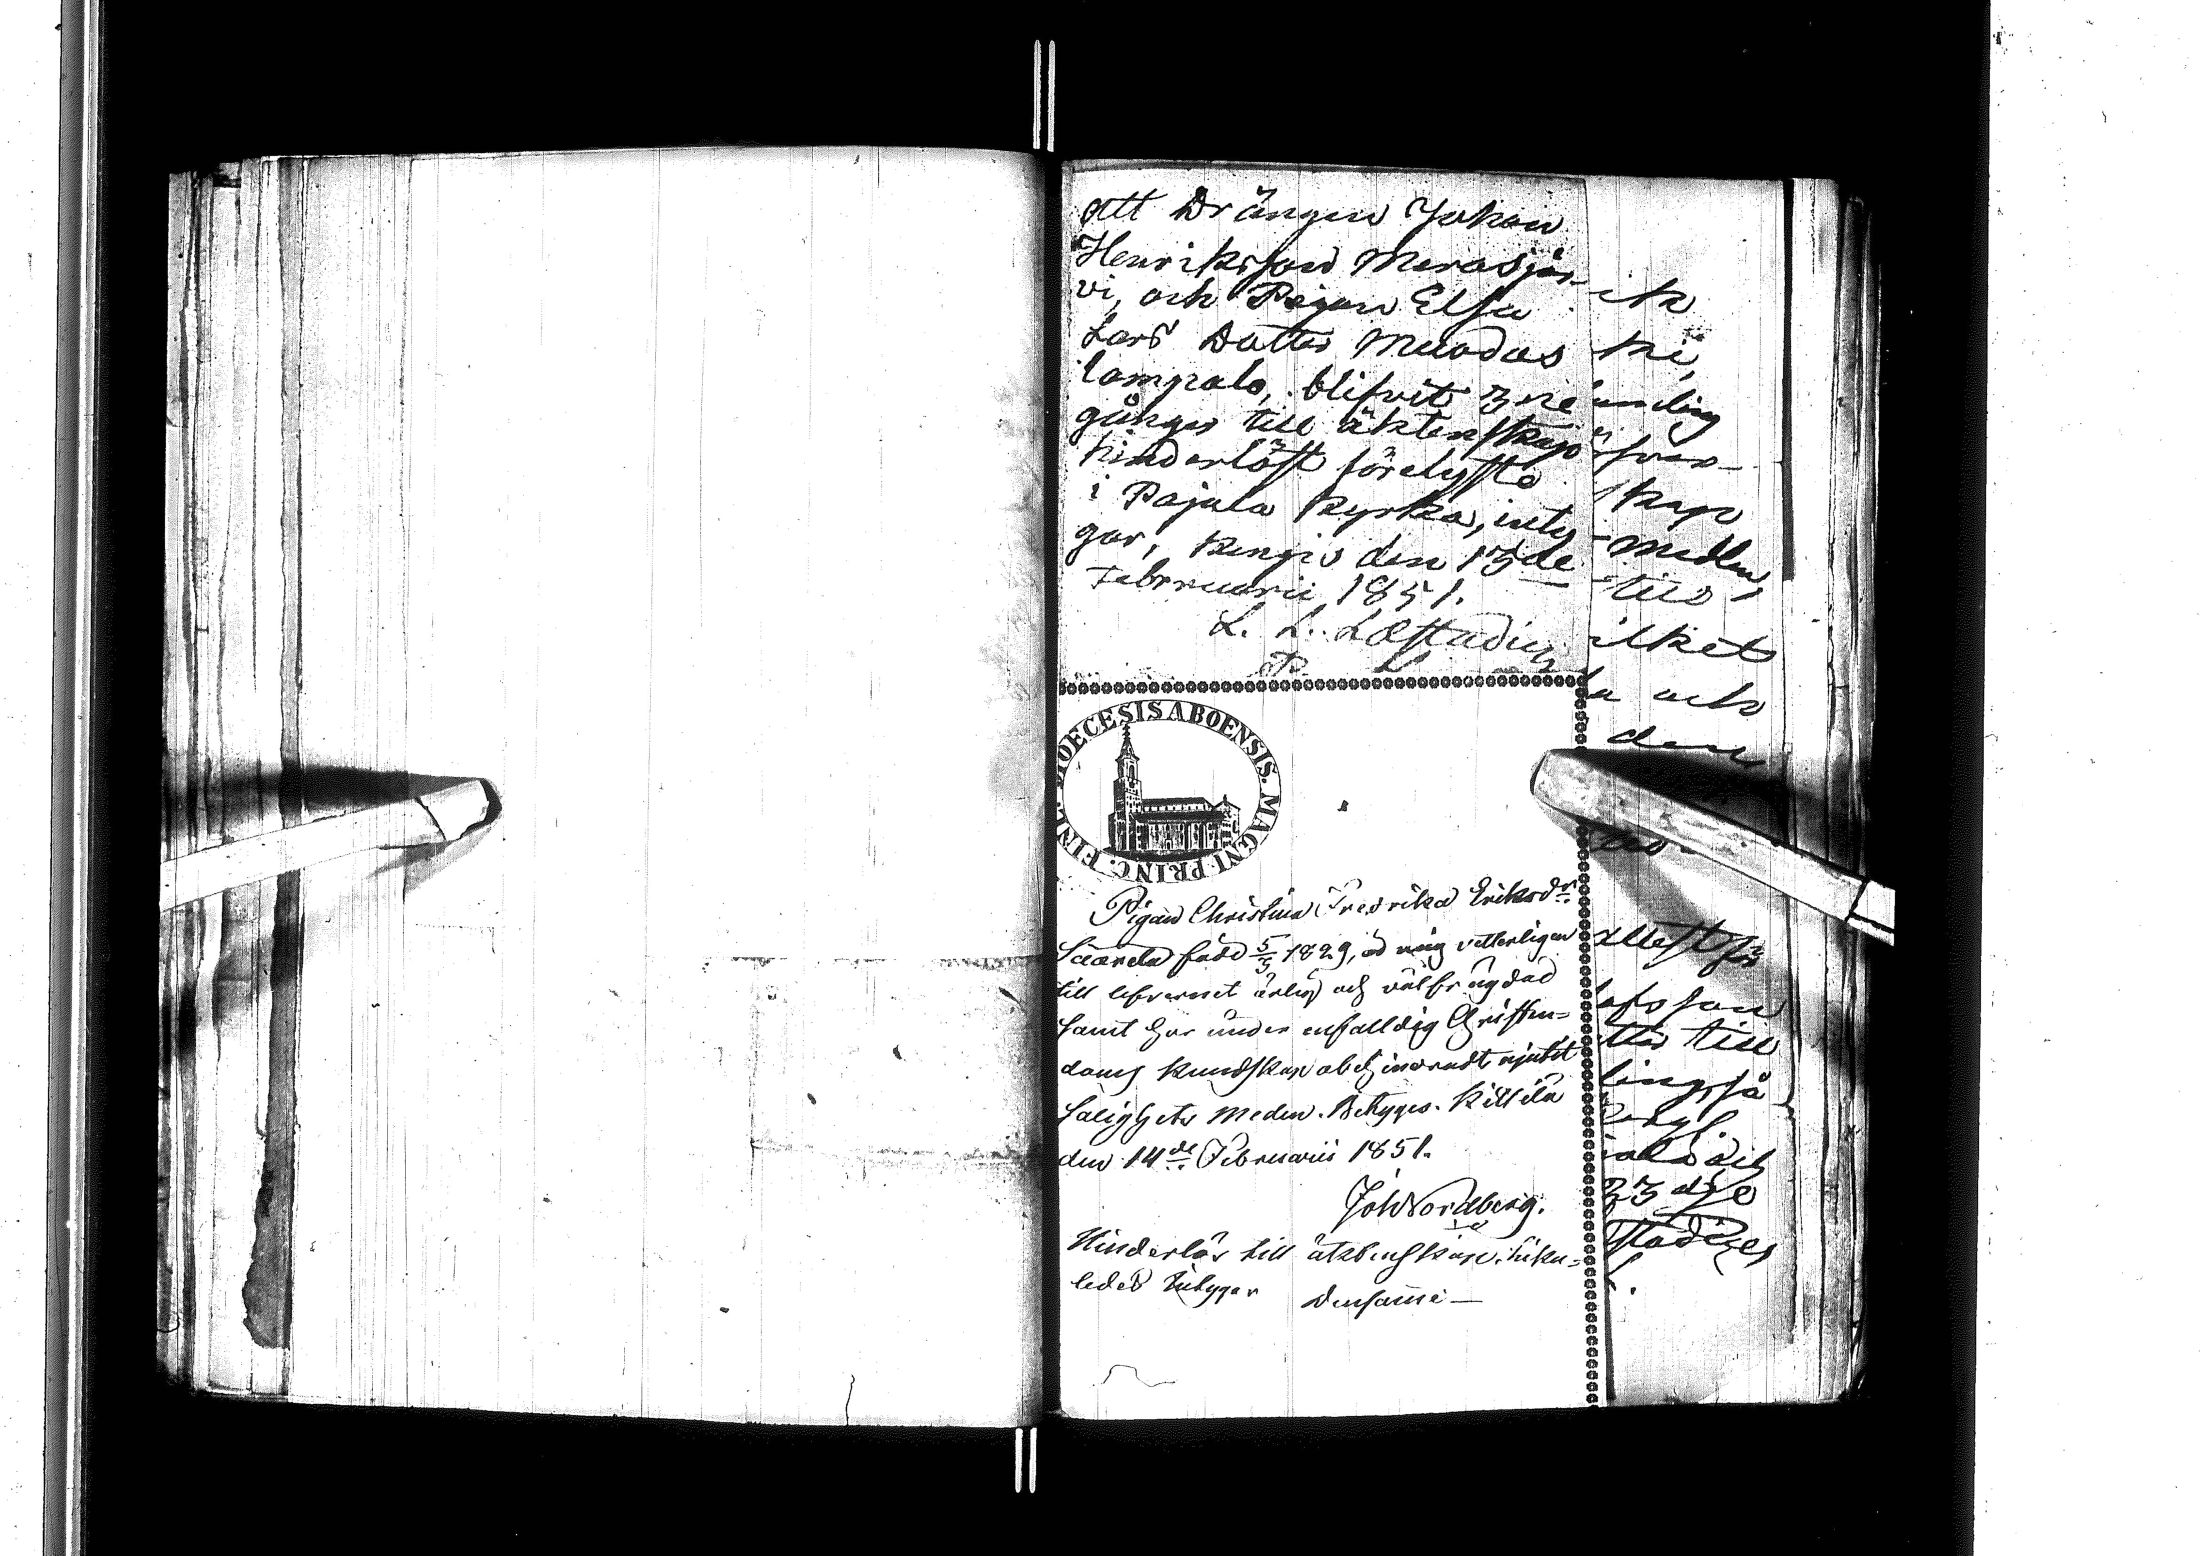 att Drängen Johan
Henriksson Merasjär-
vi, och Pigan Elsa
Lars Dotter Muodos
lompolo, blifvit 3ne
gånger till äktenskap
hinderlöst förelyste
i Pajala Kyrka, inty
gar, Kengis den 13de
Februarii 1851.
L. L. Læstadius
P. L.
DIOECESIS ABOENSIS. MAGNI PRINC. FINL.
Pigan Christina Fredrika Eriksdr
Saarela född 5/5 1829, är mig vetterligen
till lefvernet ärlig och välfrägdad
samt har under enfalldig Christen-
doms Kundskap obehindradt njutit
salighets medlen. Betygas. Kittilä
den 14de Februarii 1851.
Joh Nordberg.
Hinderlös till äktenskap. lika-
ledes Intygar Densamme —
ik
ki,
unling
öfver-
skap
medlen,
till
ilket
la och
den
ållest för
lofsson
tter till
ling, så
23dje
stadius
L.